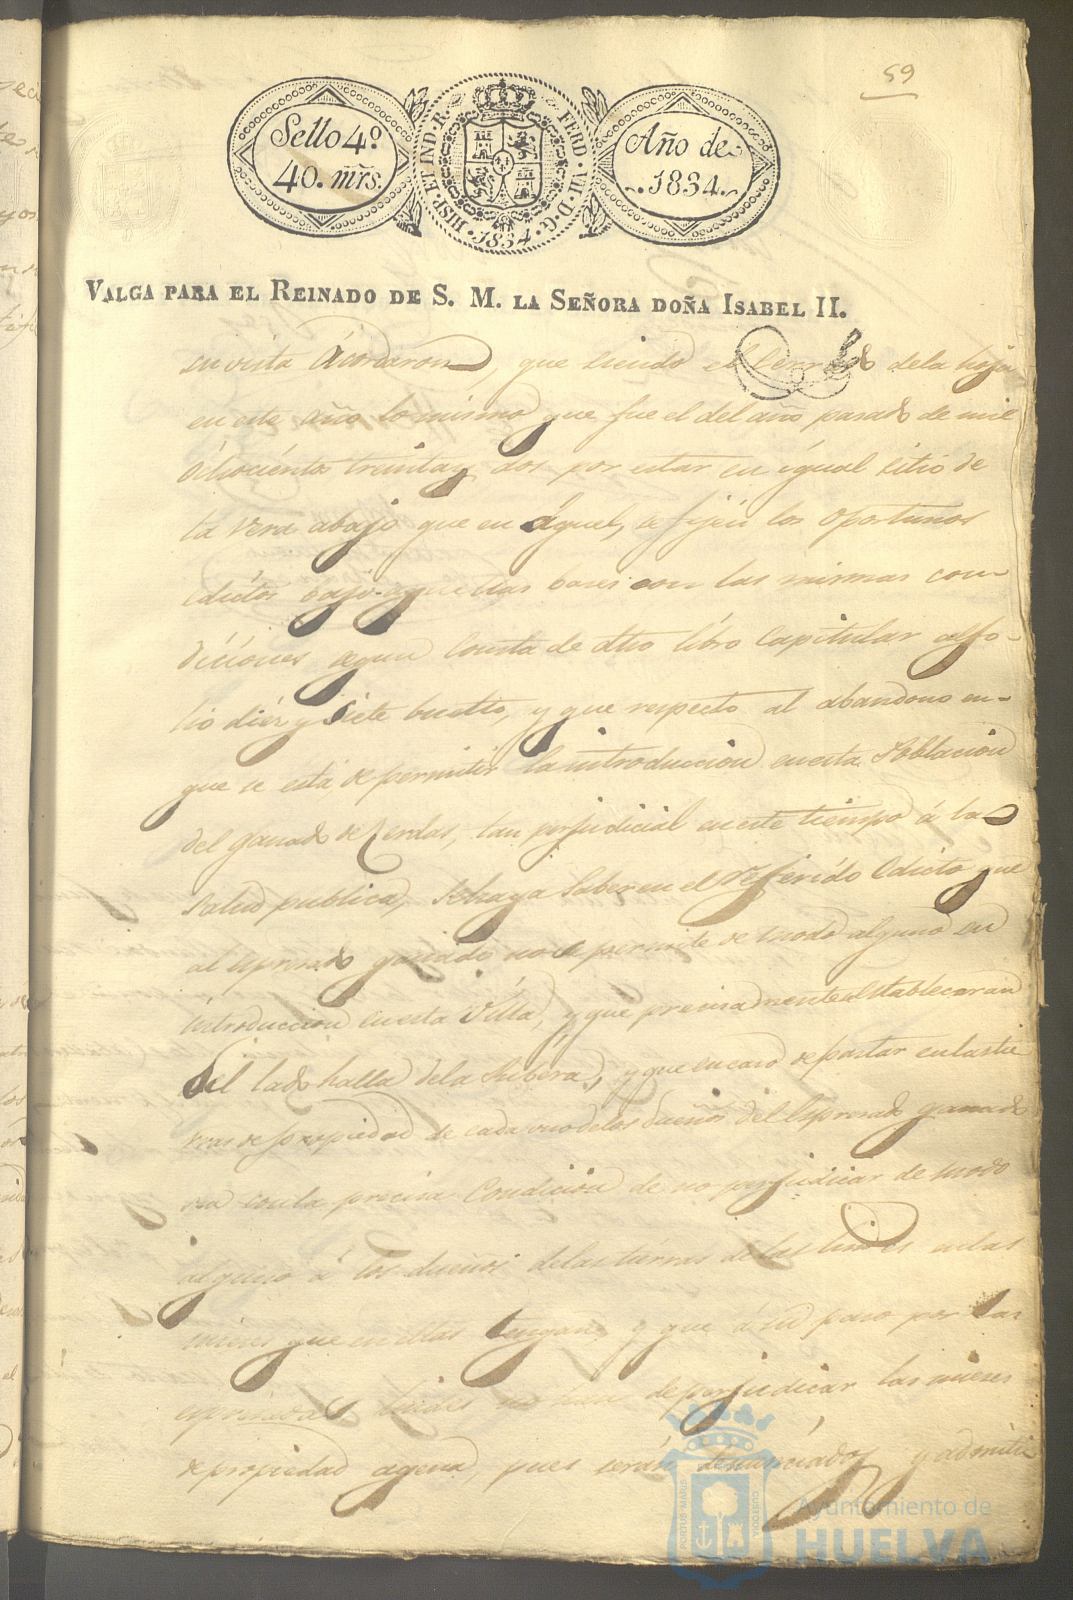 59
Sello 4º
40. mrs.
HISP. ET IND. R. FERD. VII. D. G. 1834.
Año de
1834.
VALGA PARA EL REINADO DE S. M. LA SEÑORA DOÑA ISABEL II.
su vista Acordaron, que siendo el de la hoja
en este año lo mismo que fue el del año pasado de mil
Ochocientos treinta y dos por estar en igual sitio de
la vera abajo que en aquel, se fijen los oportunos
edictos bajo aquellas bases con las mismas con-
diciones segun Consta de dho libro Capitular al fo-
lio diez y siete buelto, y que respecto al abandono en-
que se está de permitir la introduccion en esta Poblacion
del ganado de Cerdas, tan perjudicial en este tiempo á la
salud publica, se haga Saber en el referido Edicto que
al espresado ganado no se permite de modo alguno su
introduccion en esta Villa, y que precisamente estableceran
del lado de la Ribera, y que en caso de pastar en las tie
rras de propiedad de cada uno de los dueños del Espresado ganado
sea con la precisa Condicion de no perjudicar de modo
alguno á los dueños de las tierras de las lindes en las
mieses que en ellas tengan, y que á su paso por las
espresadas lindes no han de perjudicar las mieses
de propiedad agena, pues serán denunciados y
PORTUS MARIS CUSTODIA
Ayuntamiento de
HUELVA